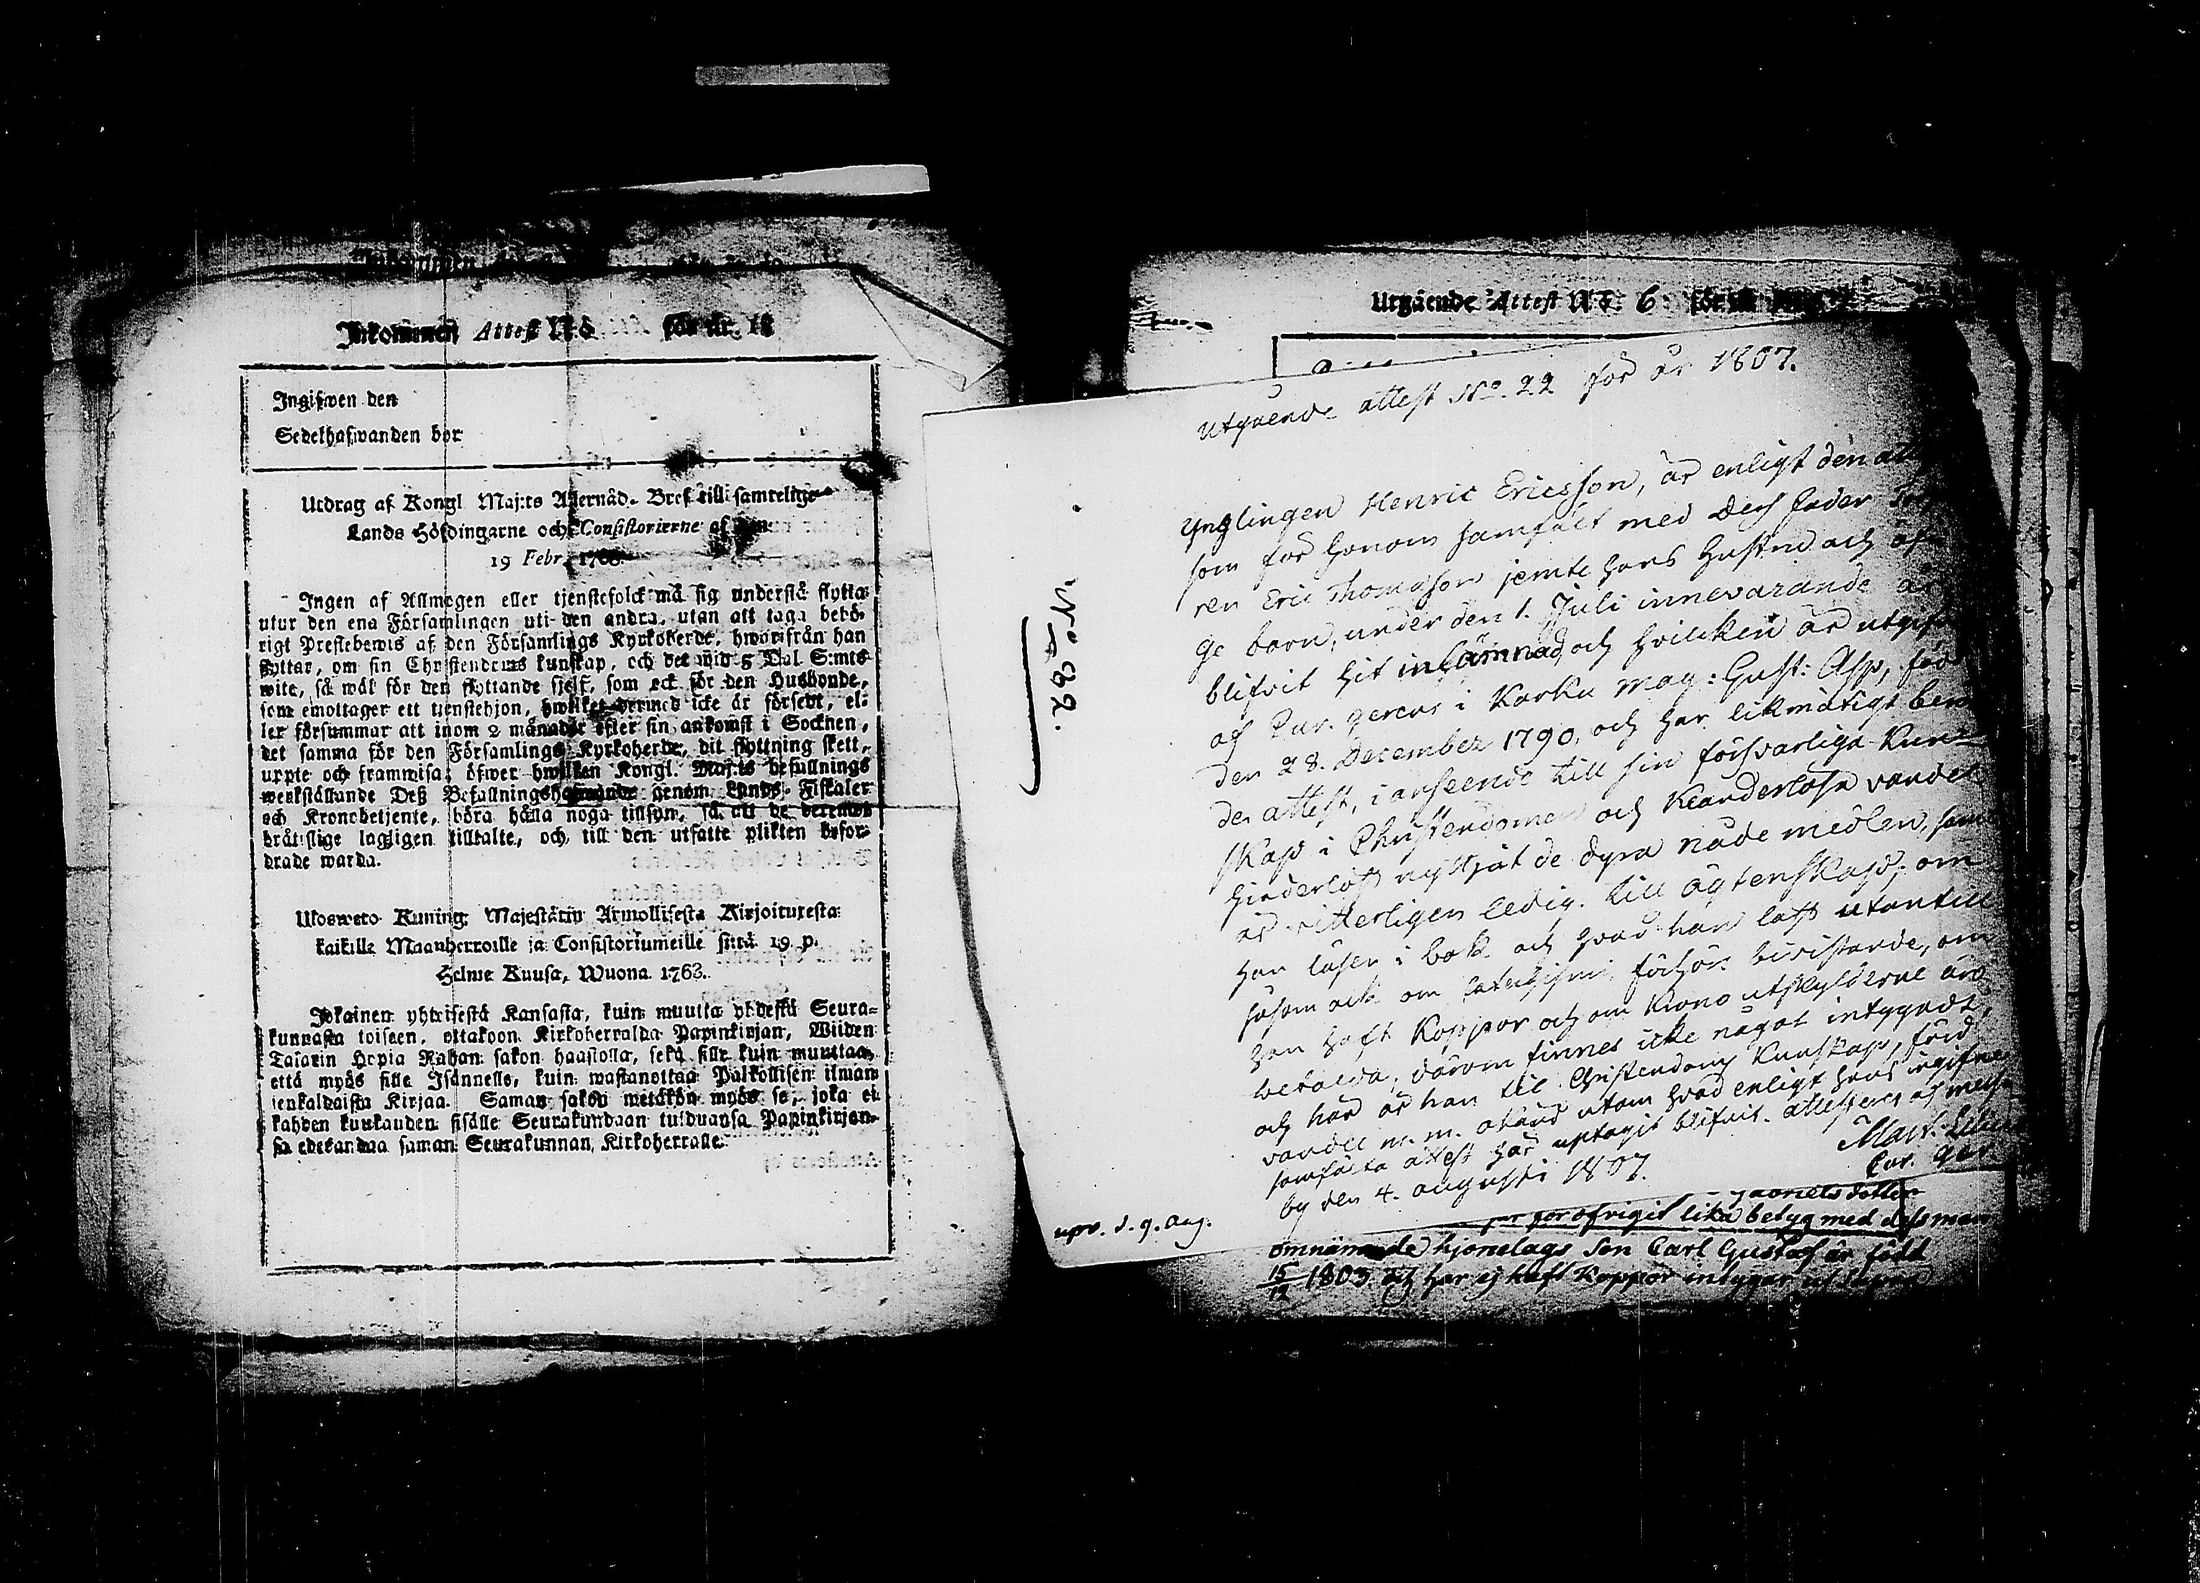 Inkommen Attest N:o för år 18
Ingifwen den
Sedelhafwanden bor
Utdrag af Kongl Maj:ts Allernåd. Bref till samtelige
Lands Höfdingarne och Consistorierne af
19 Febr. 176
Ingen af Allmogen eller tjenstefolck må sig understå flytta
utur den ena Församlingen uti den andra, utan att taga behö-
rigt Prestebewis af den Församlings Kyrkoherde, hwarifrån han
flyttar, om sin Christendoms kunskap, och det wid 5 Dal S:mts
wite, så wäl för den flyttande sjelf, som ock för den Husbonde,
som emottager ett tienstehjon, hwilket dermed icke är försedt, el-
ler försummar att inom 2 månader efter sin ankomst i Socknen,
det samma för den Församlings Kyrkoherde, dit flyttning skett,
upte och framwisa; öfwer hwilken Kongl. Maj:ts befallnings
werkställande Deß Befallningshafwande genom Lands Fiskaler
och Kronobetjente, böra hålla noga tillsyn, så att de deremot
brättslige lagligen tilltalte, och till den utsatte plikten befor-
drade warda.
Ulosweto Kuning. Majestätin Armollisesta Kirjoituresta
kaikille Maanherroille ja Consistoriumeille siitä 19. p.
Helme Kuusa, Wuona 1763.
Jokainen yhteisestä Kansasta, kuin muutta yhdestä Seura-
kunnasta toiseen, ottakoon Kirkoherralda Papinkirjan, Wiiden
Talarin Hopia Rahan sakon haastolla, sekä sille kuin muuttaa,
että myös sille Isännelle, kuin wastanottaa Palkollisen ilman
senkaldaista Kirjaa. Saman sakon wetäkön myös se, joka ei
kahden kuukauden sisälle Seurakundaan tulduansa Papinkirjan-
sa edeskandaa saman Seurakunnan Kirkoherralle.
Utgående Attest N:o 6 för år
utgående attest No. 22 för år 1807.
No 882.
Ynglingen Henric Ericsson, är enligt den at
som för honom samfält med Dess fader
ren Eric Thomasson jemte hans hustru och öf
ge barn, under den 1. Juli innevarande år
blifvit hit inlämnad, och hvilcken är utgif
af Cur. gerens i Karku Mag: Gust: Asp, föd
den 28. December 1790, och har likmätigt ber
de attest, i anseende till sin försvarliga Kun
skap i Christendomen och Klanderlösa vandel
hinderlöst nyttjat de dyra nåde medlen, samt
är vitterligen ledig till ägtenskap; om
han läser i bok och hvad han läst utantill
såsom ock om Catechismi förhörs bivistande, om
han haft Koppor och om Krono utskylderne äro
betalda, därom finnes icke något intygadt,
och här är han til Christendoms Kunskap, frid
vandel m. m. okänd utom hvad enligt hans ingifne
samfälta attest här uptagit blifvit. attesteras af
by den 4. augusti 1807.
Mart:
Cur. ger.
upv. d. 9. Aug.
Gabrielsdotter
har för öfrigit lika betyg med dess man
omnämnde hjonelags Son Carl Gustaf är född
15/12 1803. och har ej haft Koppor intygar ut supra